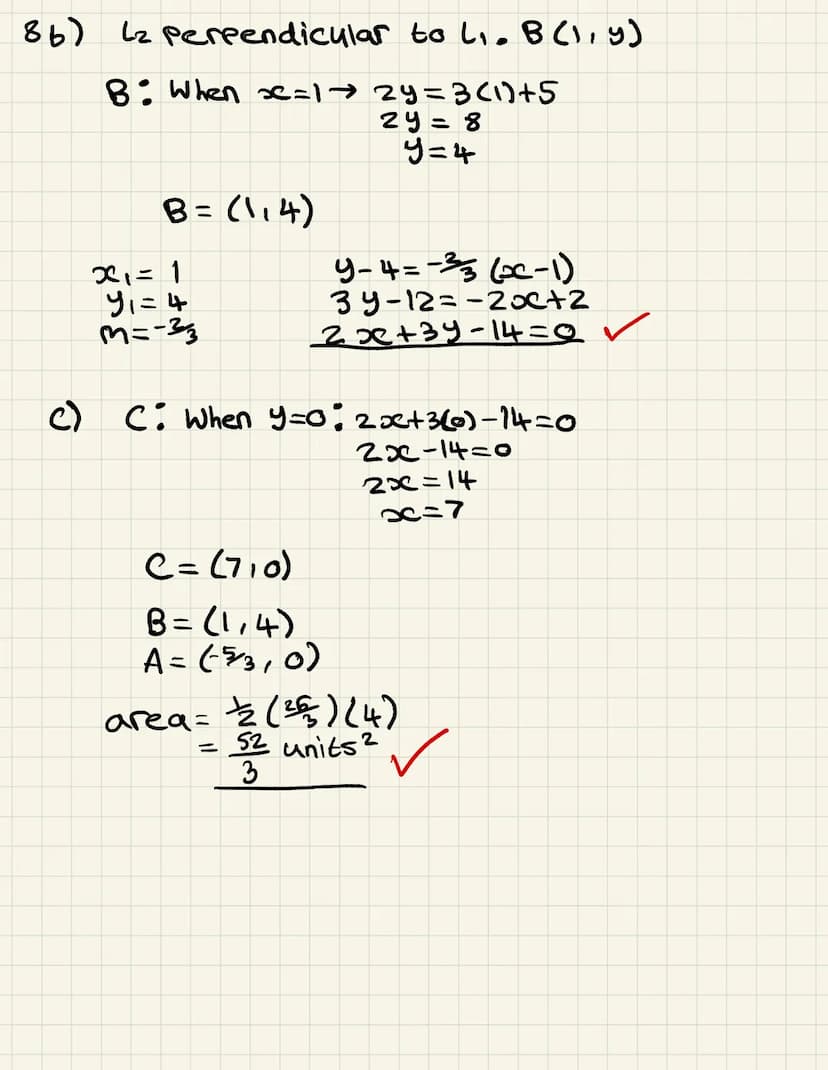 8b) L2 perpendicular to L1. B(1,y)
B: When x=1→ 2y=3(1)+5
2y = 8
y=4
B = (1,4)
x₁= 1
y₁= 4
m=-2/3
y-4=-2/3 (x-1)
3y-12=-2x+2
2x+3y-14=0 ✓
c) C: When y=0: 2x+3(0)-14=0
2x-14=0
2x=14
x=7
C= (7,0)
B= (1,4)
A= (-5/3, 0)
area= 1/2 (26/3)(4)
= 52/3 units² ✓